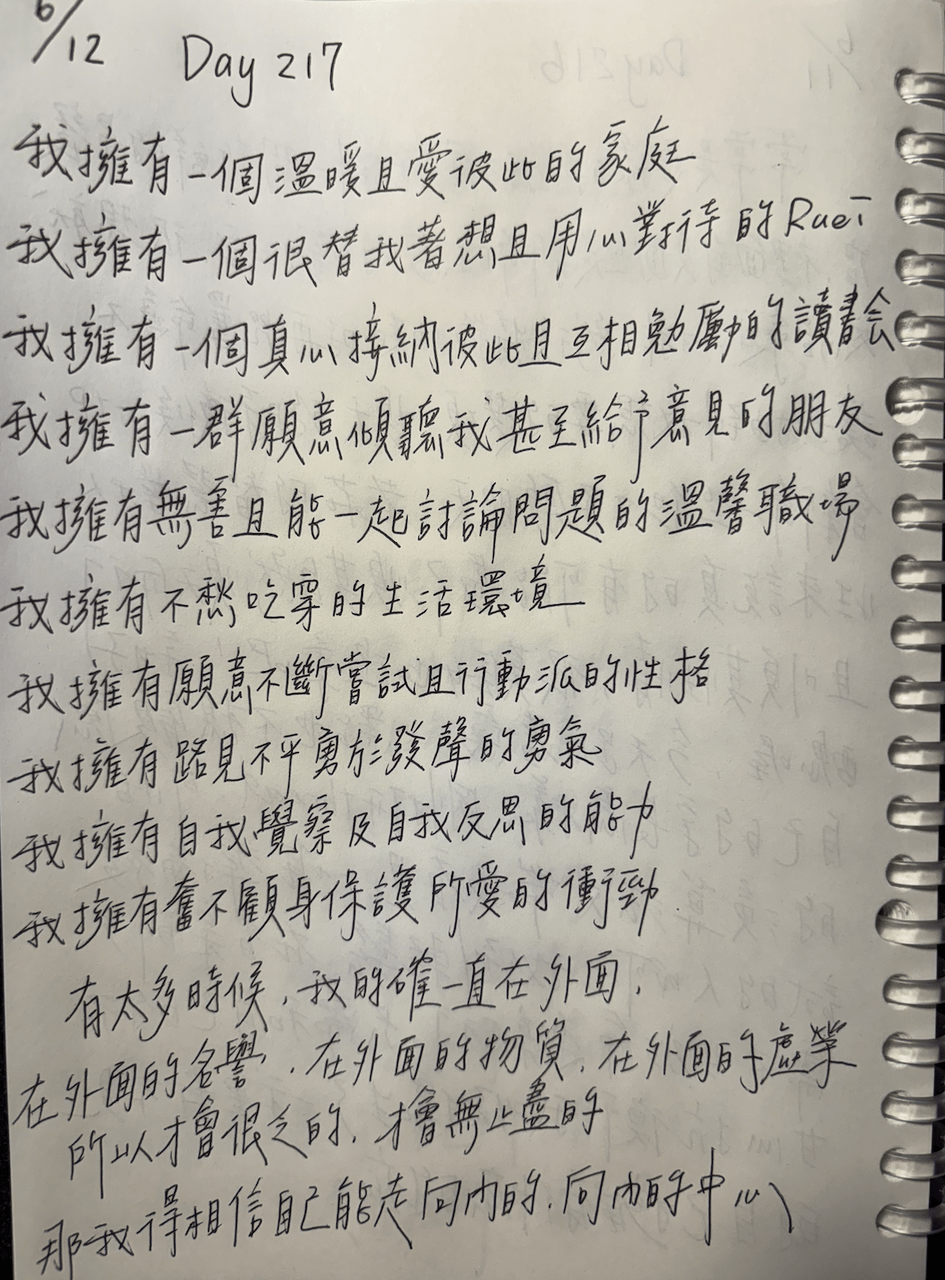 6/12 Day 217
我擁有一個溫暖且愛彼此的家庭
我擁有一個很替我著想且用心對待的Ruei
我擁有一個真心接納彼此且互相勉勵的讀書会
我擁有一群願意傾聽我甚至給予意見的朋友
我擁有無害且能一起討論問題的溫馨職場
我擁有不愁吃穿的生活環境
我擁有願意不斷嘗試且行動派的性格
我擁有路見不平勇於發聲的勇氣
我擁有自我覺察及自我反思的能力
我擁有奮不顧身保護所愛的衝勁
有太多時候,我的確一直在外面,
在外面的名譽,在外面的物質,在外面的虛榮
所以才會很乏的,才會無止盡的
那我得相信自己能走向內的,向內的中心